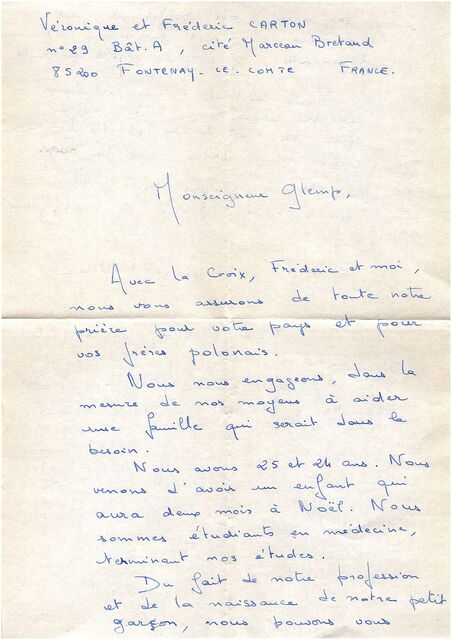 Véronique et Frédéric CARTON
n° 29 Bât. A, cité Marceau Bretaud
85200 FONTENAY-LE-COMTE FRANCE.
Monseigneur Glemp,
Avec la Croix, Frédéric et moi,
nous vous assurons de toute notre
prière pour votre pays et pour
vos frères polonais.
Nous nous engageons, dans la
mesure de nos moyens à aider
une famille qui serait dans le
besoin.
Nous avons 25 et 24 ans. Nous
venons d'avoir un enfant qui
aura deux mois à Noël. Nous
sommes étudiants en médecine,
terminant nos études.
Du fait de notre profession
et de la naissance de notre petit
garçon, nous pouvons vous